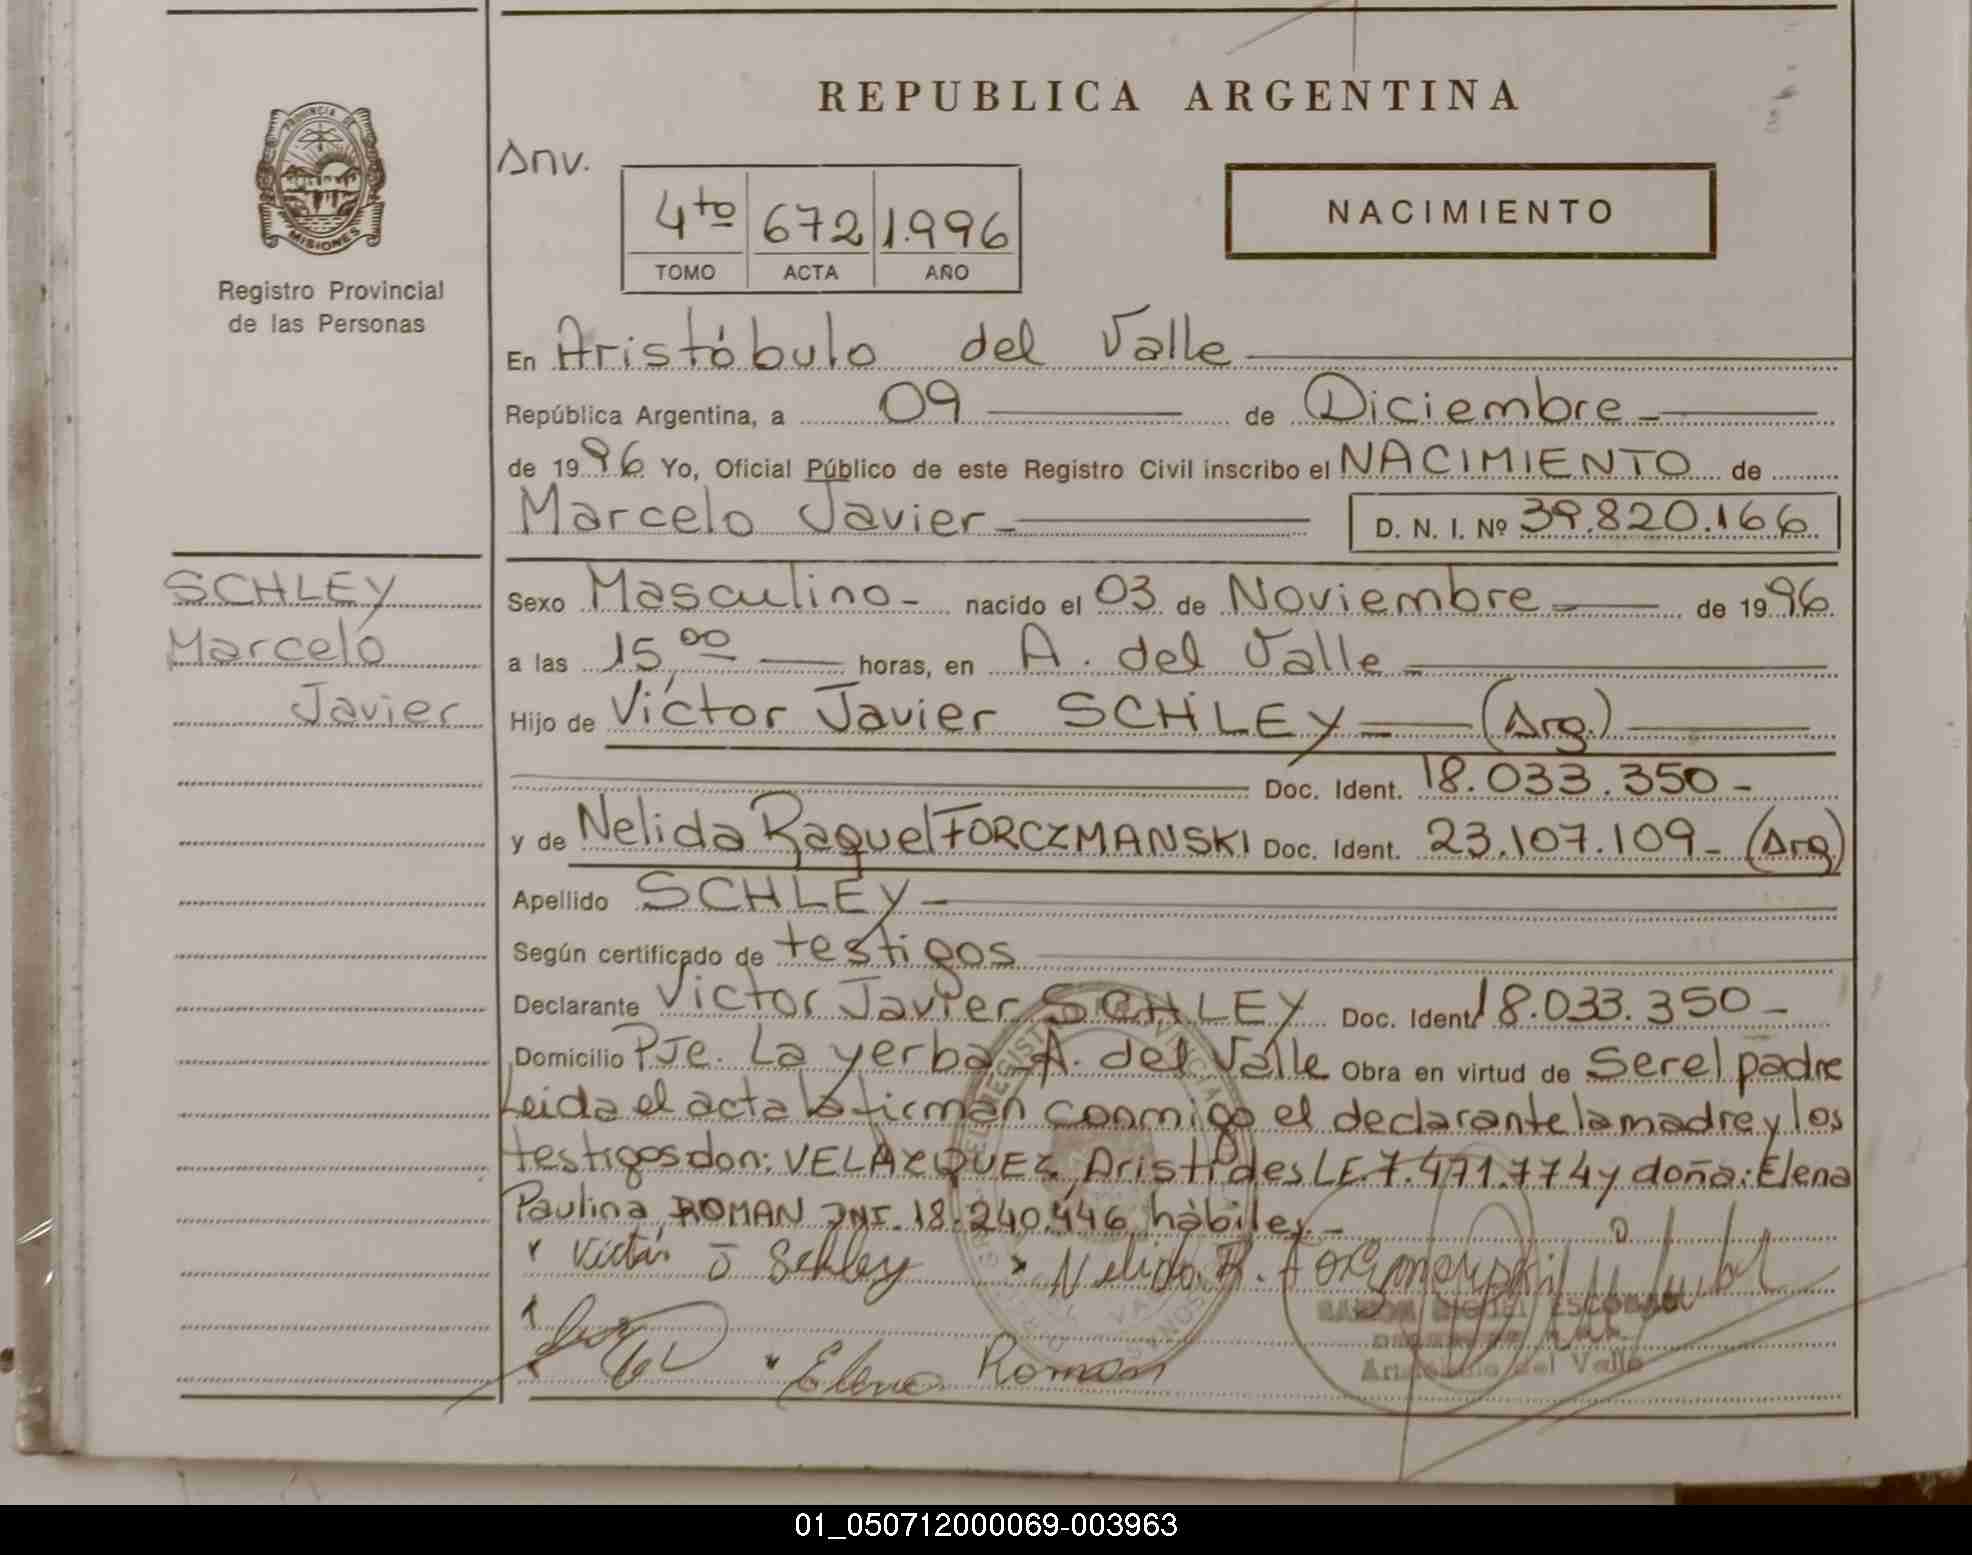 REPUBLICA ARGENTINA
PROVINCIA DE
MISIONES
Registro Provincial
de las Personas
Anv.
4to 672 1.996
TOMO ACTA AÑO
NACIMIENTO
En Aristóbulo del Valle
República Argentina, a 09 de Diciembre
de 1996 Yo, Oficial Público de este Registro Civil inscribo el NACIMIENTO de
Marcelo Javier D. N. I. Nº 39.820.166
SCHLEY
Marcelo
Javier
Sexo Masculino nacido el 03 de Noviembre de 1996
a las 15,00 horas, en A. del Valle
Hijo de Víctor Javier SCHLEY (Arg.)
Doc. Ident. 18.033.350
y de Nelida Raquel FORCZMANSKI Doc. Ident. 23.107.109 (Arg)
Apellido SCHLEY
Según certificado de testigos
Declarante Victor Javier SCHLEY Doc. Ident. 18.033.350
Domicilio PJe. La yerba A. del Valle Obra en virtud de Ser el padre
Leida el acta la firman conmigo el declarante la madre y los
testigos don: VELAZQUEZ, Aristides LE. 7.471.774 y doña: Elena
Paulina ROMAN DNI. 18.240.446, hábiles.
Victor J Schley Nelida R. Forczmanski
Elena Roman
ESCOBAR
Aristobulo del Valle
01_050712000069-003963